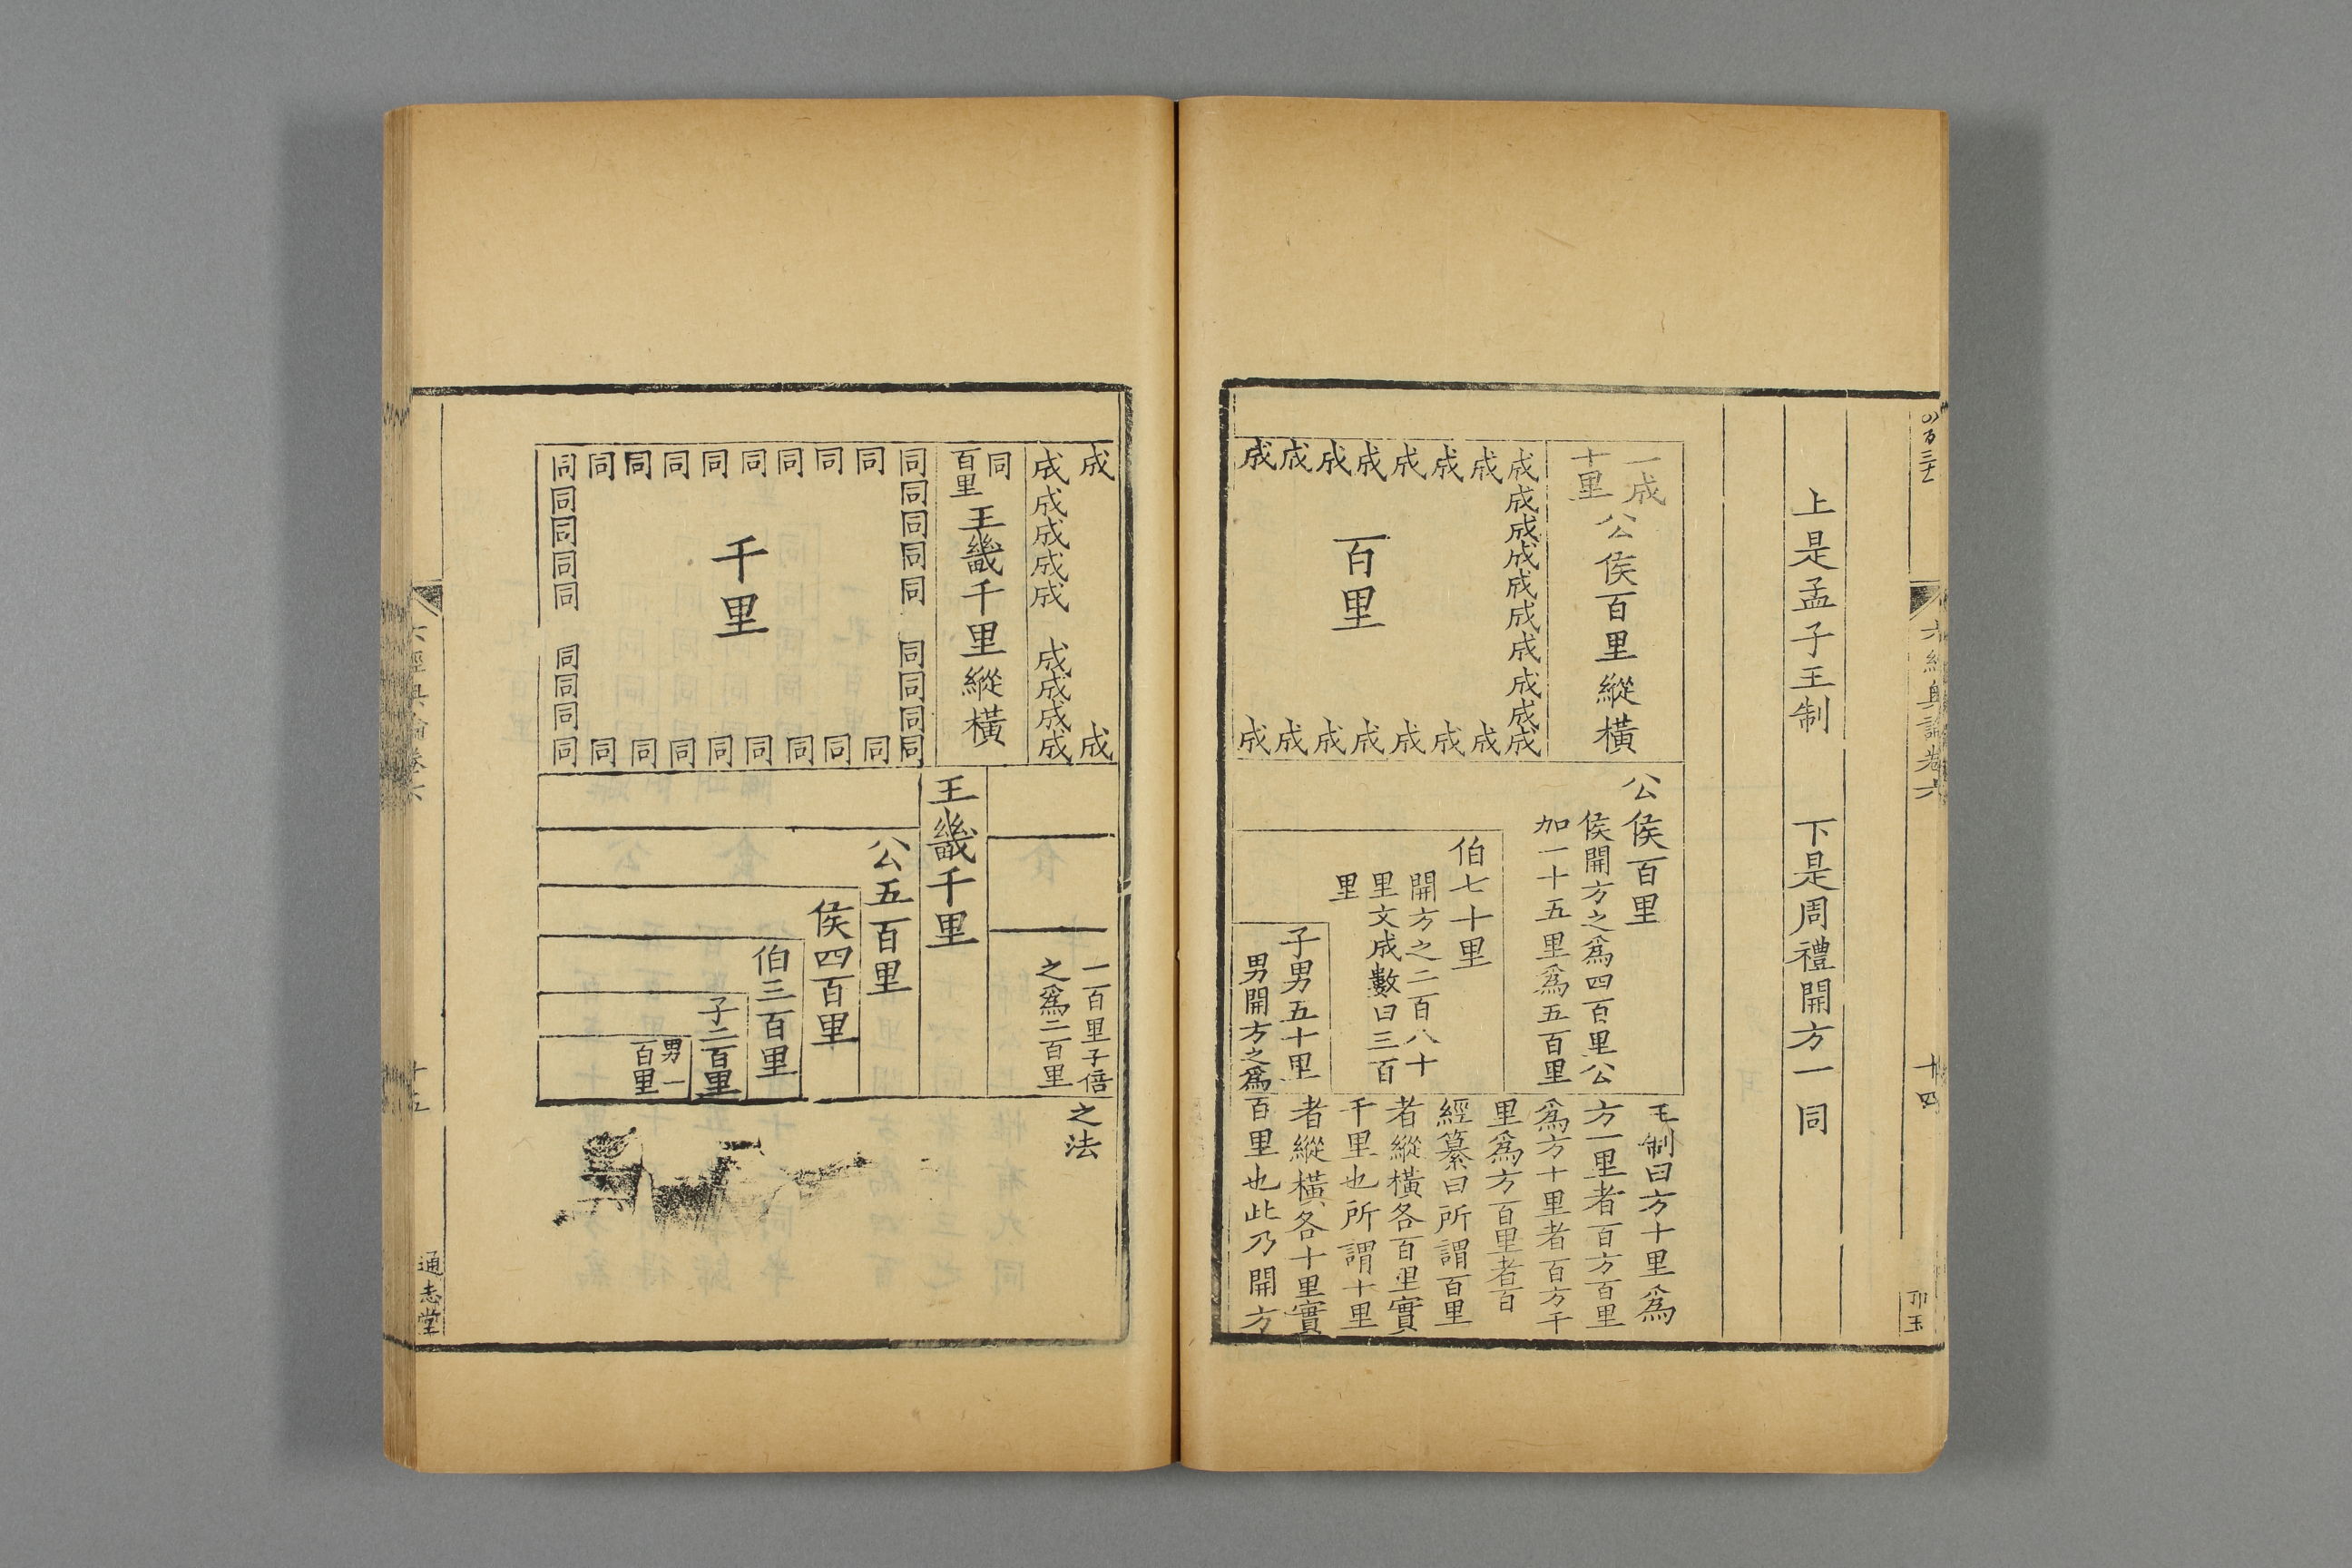 六經奧論卷六
十四
上是孟子王制 下是周禮開方一同
一成
十里
公侯百里縱橫
成成成成成成成成成成
成成成成成成成
百里
成成成成成成成
公侯百里
侯開方之爲四百里公
加一十五里爲五百里
伯七十里
開方之二百八十
里文成數曰三百
里
子男五十里
男開方之爲
王制曰方十里爲
方一里者百方百里
爲方十里者百方千
里爲方百里者百
經纂曰所謂百里
者縱橫各百里實
千里也所謂十里
者縱橫各十里實
百里也此乃開方
成 成
成成成成成 成成成成
同
百里
王畿千里縱橫
同同同同同 同同同同
同同同同同同同同
千里
同同同同同同同同
同同同同同 同同同同
一百里子倍
之爲二百里
王畿千里
公五百里
侯四百里
伯三百里
子二百里
男一
百里
之法
六經奧論卷六
十五
通志堂